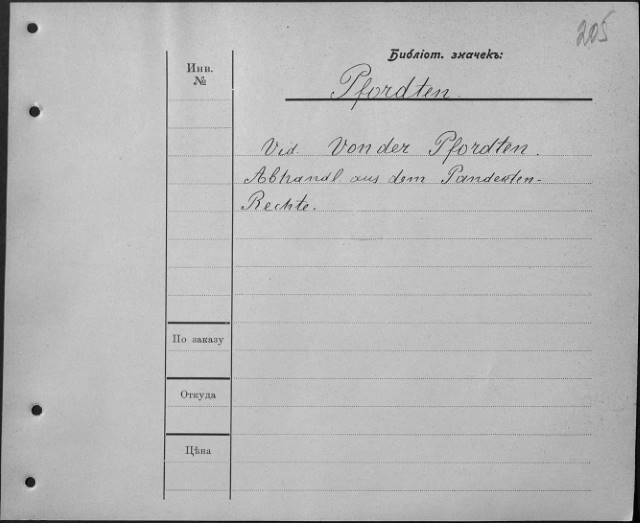 205
Библіот. значекъ:
Инв.
№
Pfordten.
Vid. Von der Pfordten.
Abhandl aus dem Pandekten-
Rechte.
По заказу
Откуда
Цѣна